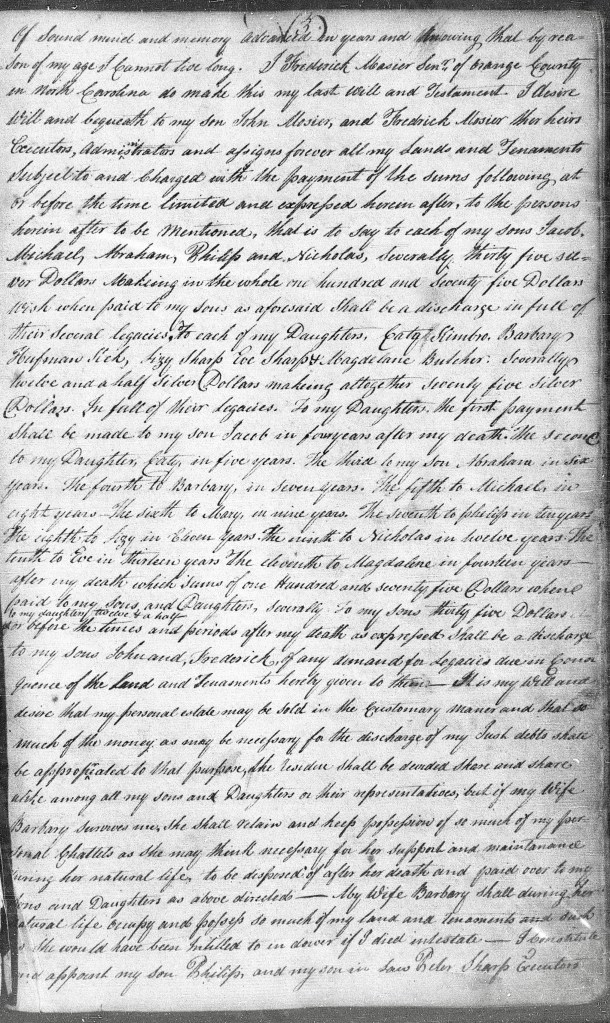 (5)
Of Sound mind and memory advanced in years and knowing that by rea-
son of my age I Cannot live long. I Frederick Mosier Senr. of Orange County
in North Carolina do make this my last Will and Testament. I desire
Will and bequeath to my son John Mosier, and Fredrick Mosier ther heirs
Executors, Administrators and assigns forever all my Lands and Tenaments
Subject to and Charged with the payment of the sums following at
or before the time limited and expressed herein after, to the persons
herein after to be Mentioned, that is to say to each of my sons Jacob,
Michael, Abraham, Philip and Nicholas, severally thirty five sil-
vor Dollars Making in the whole one hundred and seventy five Dollars
Wish when paid to my sons as aforesaid Shall be a discharge in full of
their several legacies, To each of my Daughters, Caty Kimbro, Barbary
Hufman Sick, Lizy Sharp Eve Sharp & Magdelane Butcher: Severally
twelve and a half Silver Dollars making altogether Seventy five Silver
Dollars. In full of their legacies. To my Daughters. the first payment
Shall be made to my son Jacob in four years after my death. The second
to my Daughter, Caty, in five years. The third to my son Abraham in six
years. The fourth to Barbary, in seven years. The fifth to Michael, in
eight years - The sixth to Mary, in nine years. The seventh to philip in ten years
The eighth to Lizy in Eleven years. The ninth to Nicholas in twelve years. The
tenth to Eve in thirteen years The eleventh to Magdalene in fourteen years
after my death which sums of one Hundred and seventy five Dollars when
paid to my sons, and Daughters, severally To my sons thirty five Dollars
to my daughters twelve & a half
or before the times and periods after my death as expressed Shall be a discharge
to my sons John and Frederick, of any demand for Legacies due in Conse
quence of the Land and Tenaments hereby given to them - It is my Will and
desire that my personal estate may be sold in the Customary maner and that so
much of the money as may be necessary for the discharge of my Just debts shall
be appropriated to that purpose, the residue shall be devided share and share
alike among all my sons and Daughters or their representatives, but if my Wife
Barbary survives me, she shall retain and keep possession of so much of my per-
sonal Chattels as she may think necessary for her support and maintanance
during her natural life, to be disposed of after her death and paid over to my
sons and Daughters as above directed - My Wife Barbary shall during her
natural life occupy and possess so much of my land and tenaments and such
as She would have been intitled to in dower if I died intestate - I constitute
and appoint my son Philip, and my son in law Peter Sharp Executors